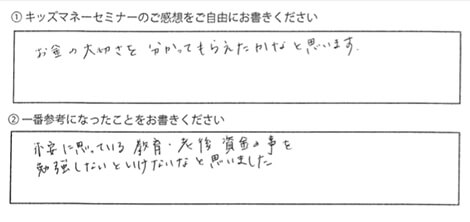 ① キッズマネーセミナーのご感想をご自由にお書きください
お金の大切さを 分かってもらえたかなと思います。
② 一番参考になったことをお書きください
不安に思っている 教育・老後 資金の事を
勉強しないといけないなと思いました